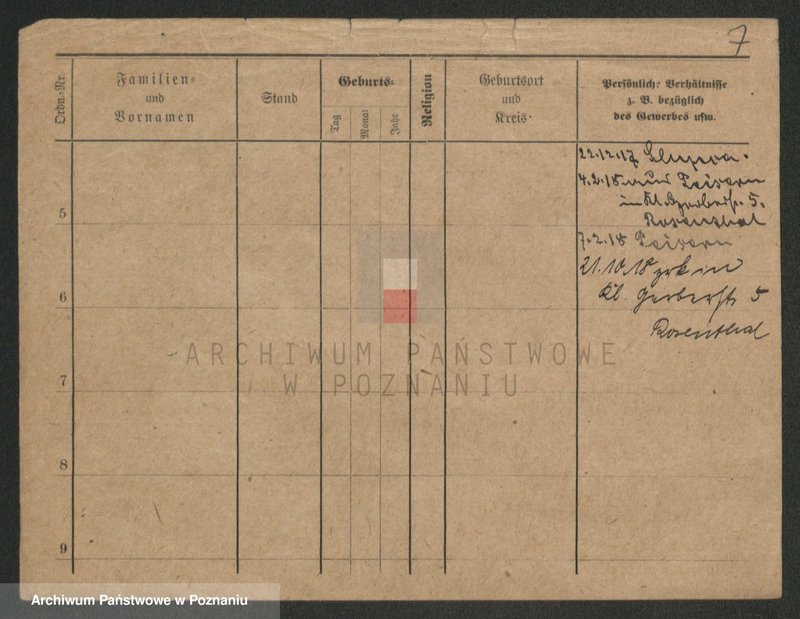 7
Ordn.-Nr.
Familien-
und
Vornamen
Stand
Geburts-
Tag
Monat
Jahr
Religion
Geburtsort
und
Kreis
Persönliche Verhältnisse
z. B. bezüglich
des Gewerbes usw.
22.12.17 Slupca.
4.2.18 Peisern
in Kl. Gerberstr. 5.
Rosenthal
7.2.18 Peisern
21.10.18 zrk in
Kl. Gerberstr 5
Rosenthal
5
6
7
8
9
ARCHIWUM PAŃSTWOWE
W POZNANIU
Archiwum Państwowe w Poznaniu